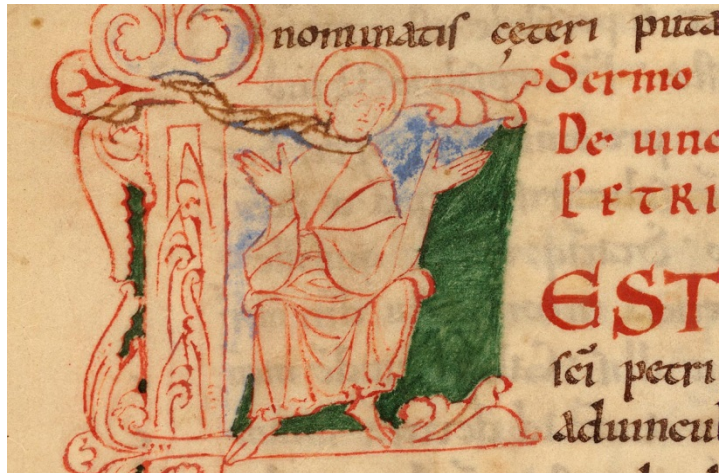 nominatis cęteri puta
Sermo
De uinc
PETRI
EST
sc̄i petri
aduincul